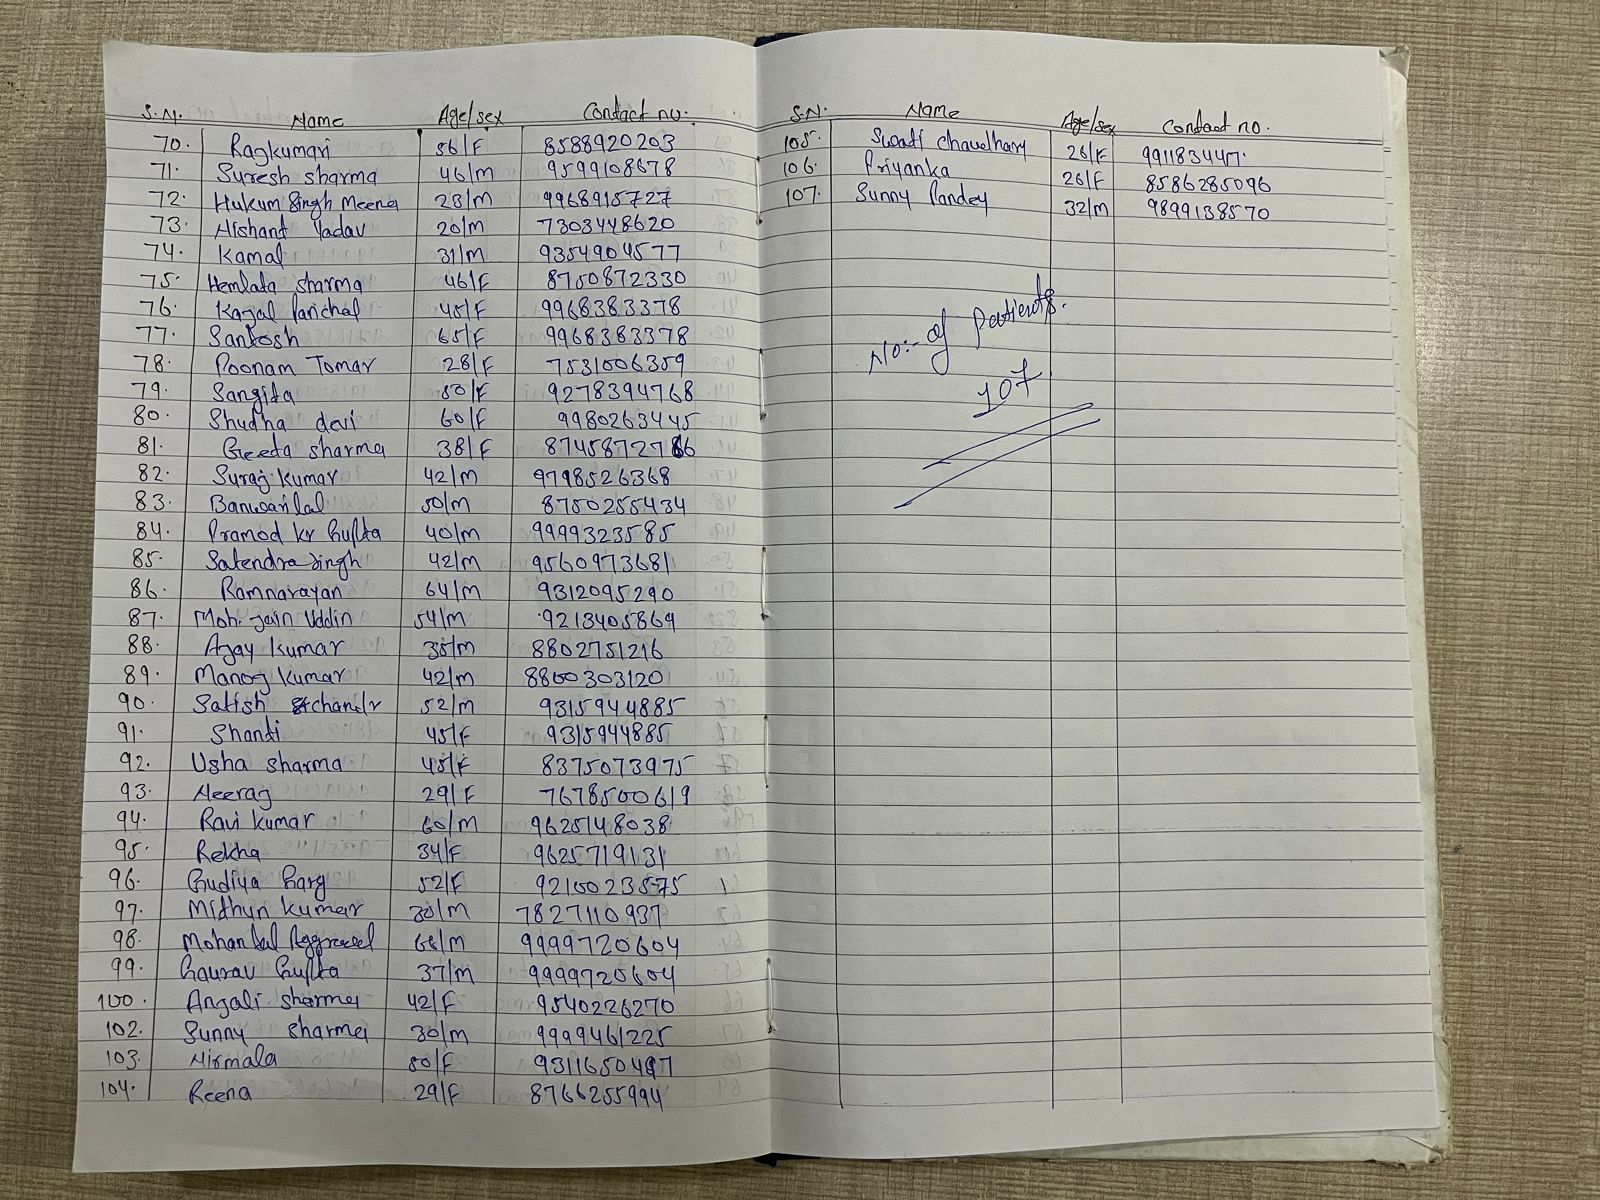 S.N. Name Age/sex Contact no.
70. Rajkumari 56/F 8588920203
71. Suresh sharma 46/M 9599108678
72. Hukum Singh Meena 23/M 9968915727
73. Nishant Yadav 20/M 7303448620
74. Kamal 31/M 9354904577
75. Hemlata sharma 46/F 8750872330
76. Kajal Panchal 45/F 9968383378
77. Santosh 65/F 9968383378
78. Poonam Tomar 28/F 7531006359
79. Sangita 50/F 9278394768
80. Shudha devi 60/F 9980263445
81. Geeta sharma 38/F
82. Suraj kumar 42/M 9798526368
83. Banwarilal 50/M 8750255434
84. Pramod kr Gupta 40/M 9999323585
85. Satendra singh 42/M 9560973681
86. Ramnarayan 64/M 9312095290
87. Moh. Jain Uddin 54/M 9213405869
88. Ajay kumar 35/M 8802751216
89. Manoj kumar 42/M 8800303120
90. Satish chandr 52/M 9315944885
91. Shanti 45/F 9315944885
92. Usha sharma 45/F 8375073975
93. Neeraj 29/F 7678500619
94. Ravi kumar 60/M 9625148038
95. Rekha 34/F 9625719131
96. Gudiya Garg 52/F 9210023575
97. Mithun kumar 30/M 7827110937
98. Mohan Lal Aggrawal 66/M 9999720604
99. Gaurav Gupta 37/M 9999720604
100. Anjali sharma 42/F 9540226270
102. Sunny sharma 30/M 9999461225
103. Nirmala 50/F
104. Reena 29/F 8766255994
S.N. Name Age/sex Contact no.
105. Swati chaudhary 26/F 991183447.
106. Priyanka 26/F 8586285096
107. Sunny Pandey 32/M 9899138570
No:- of patients.
107